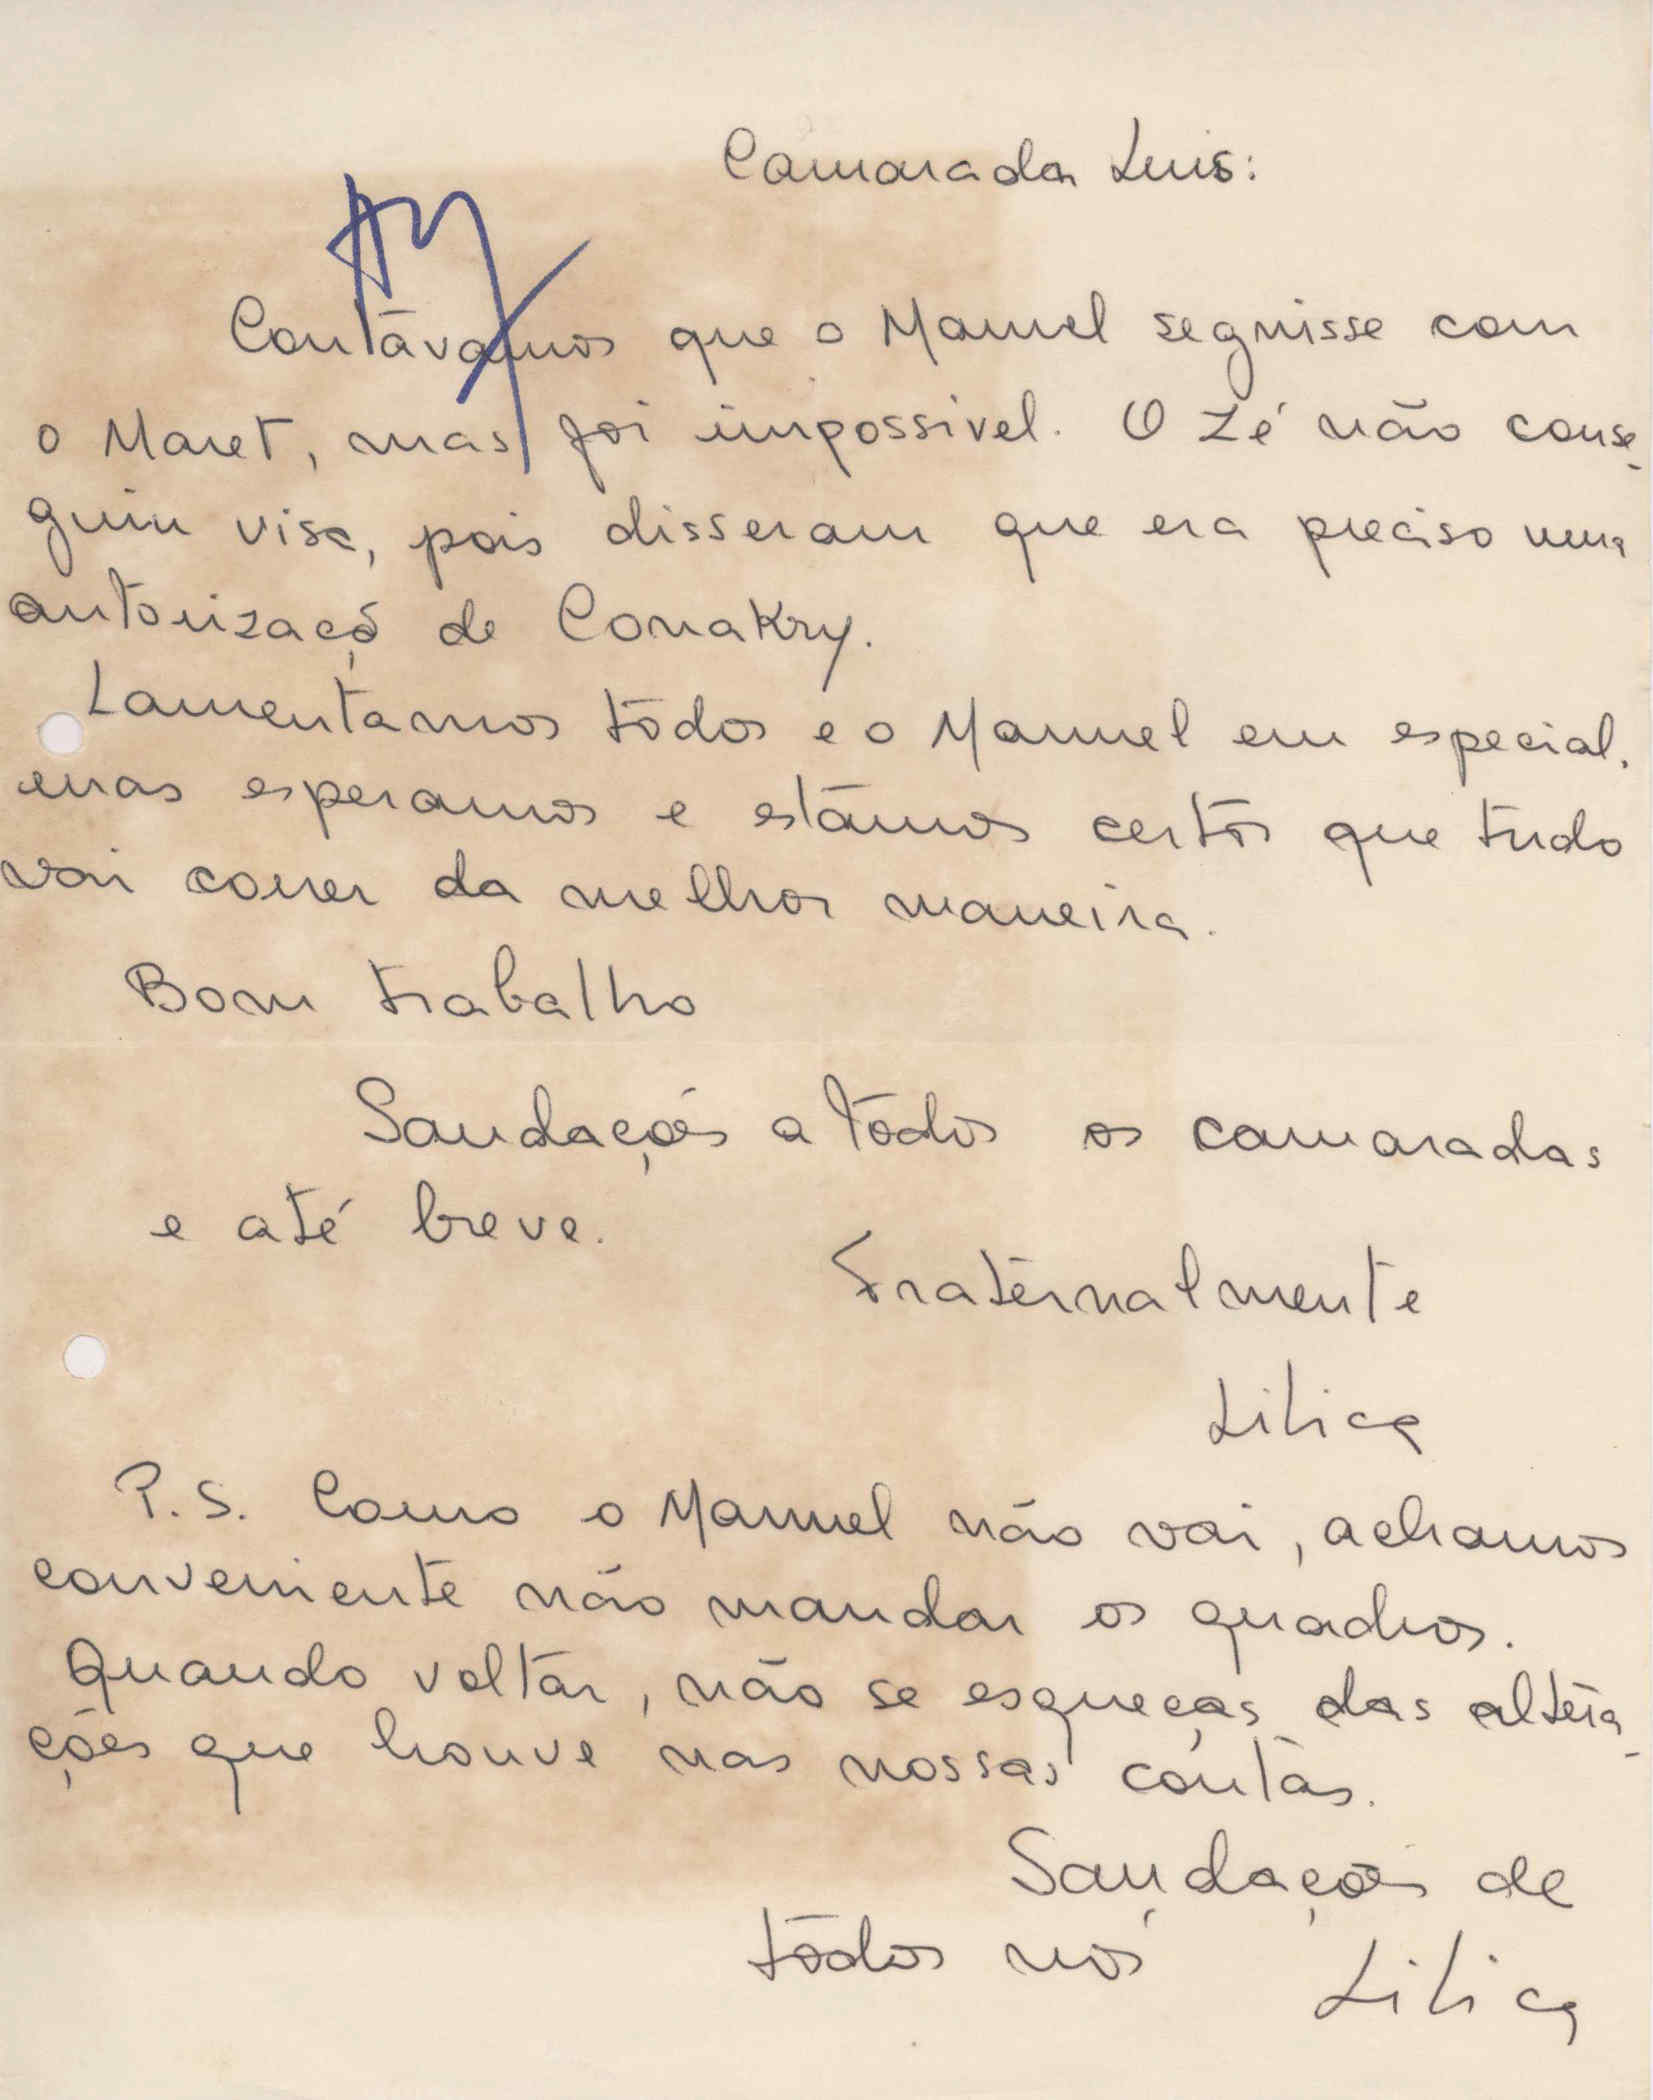 Camarada Luis:
Contávamos que o Manuel seguisse com
o Maret, mas foi impossivel. O Zé não conse-
guiu visa, pois disseram que era preciso uma
autorizaçõ de Conakry.
Lamentamos todos e o Manuel em especial,
mas esperamos e estámos certos que tudo
vai correr da melhor maneira.
Bom trabalho
Saudações a todos os camaradas
e até breve.
Fraternalmente
Lilica
P.S. Como o Manuel não vai, achamos
conveniente não mandar os quadros.
Quando voltar, não se esqueças das altera-
ções que houve nas nossas contas.
Saudações de
todos nós
Lilica